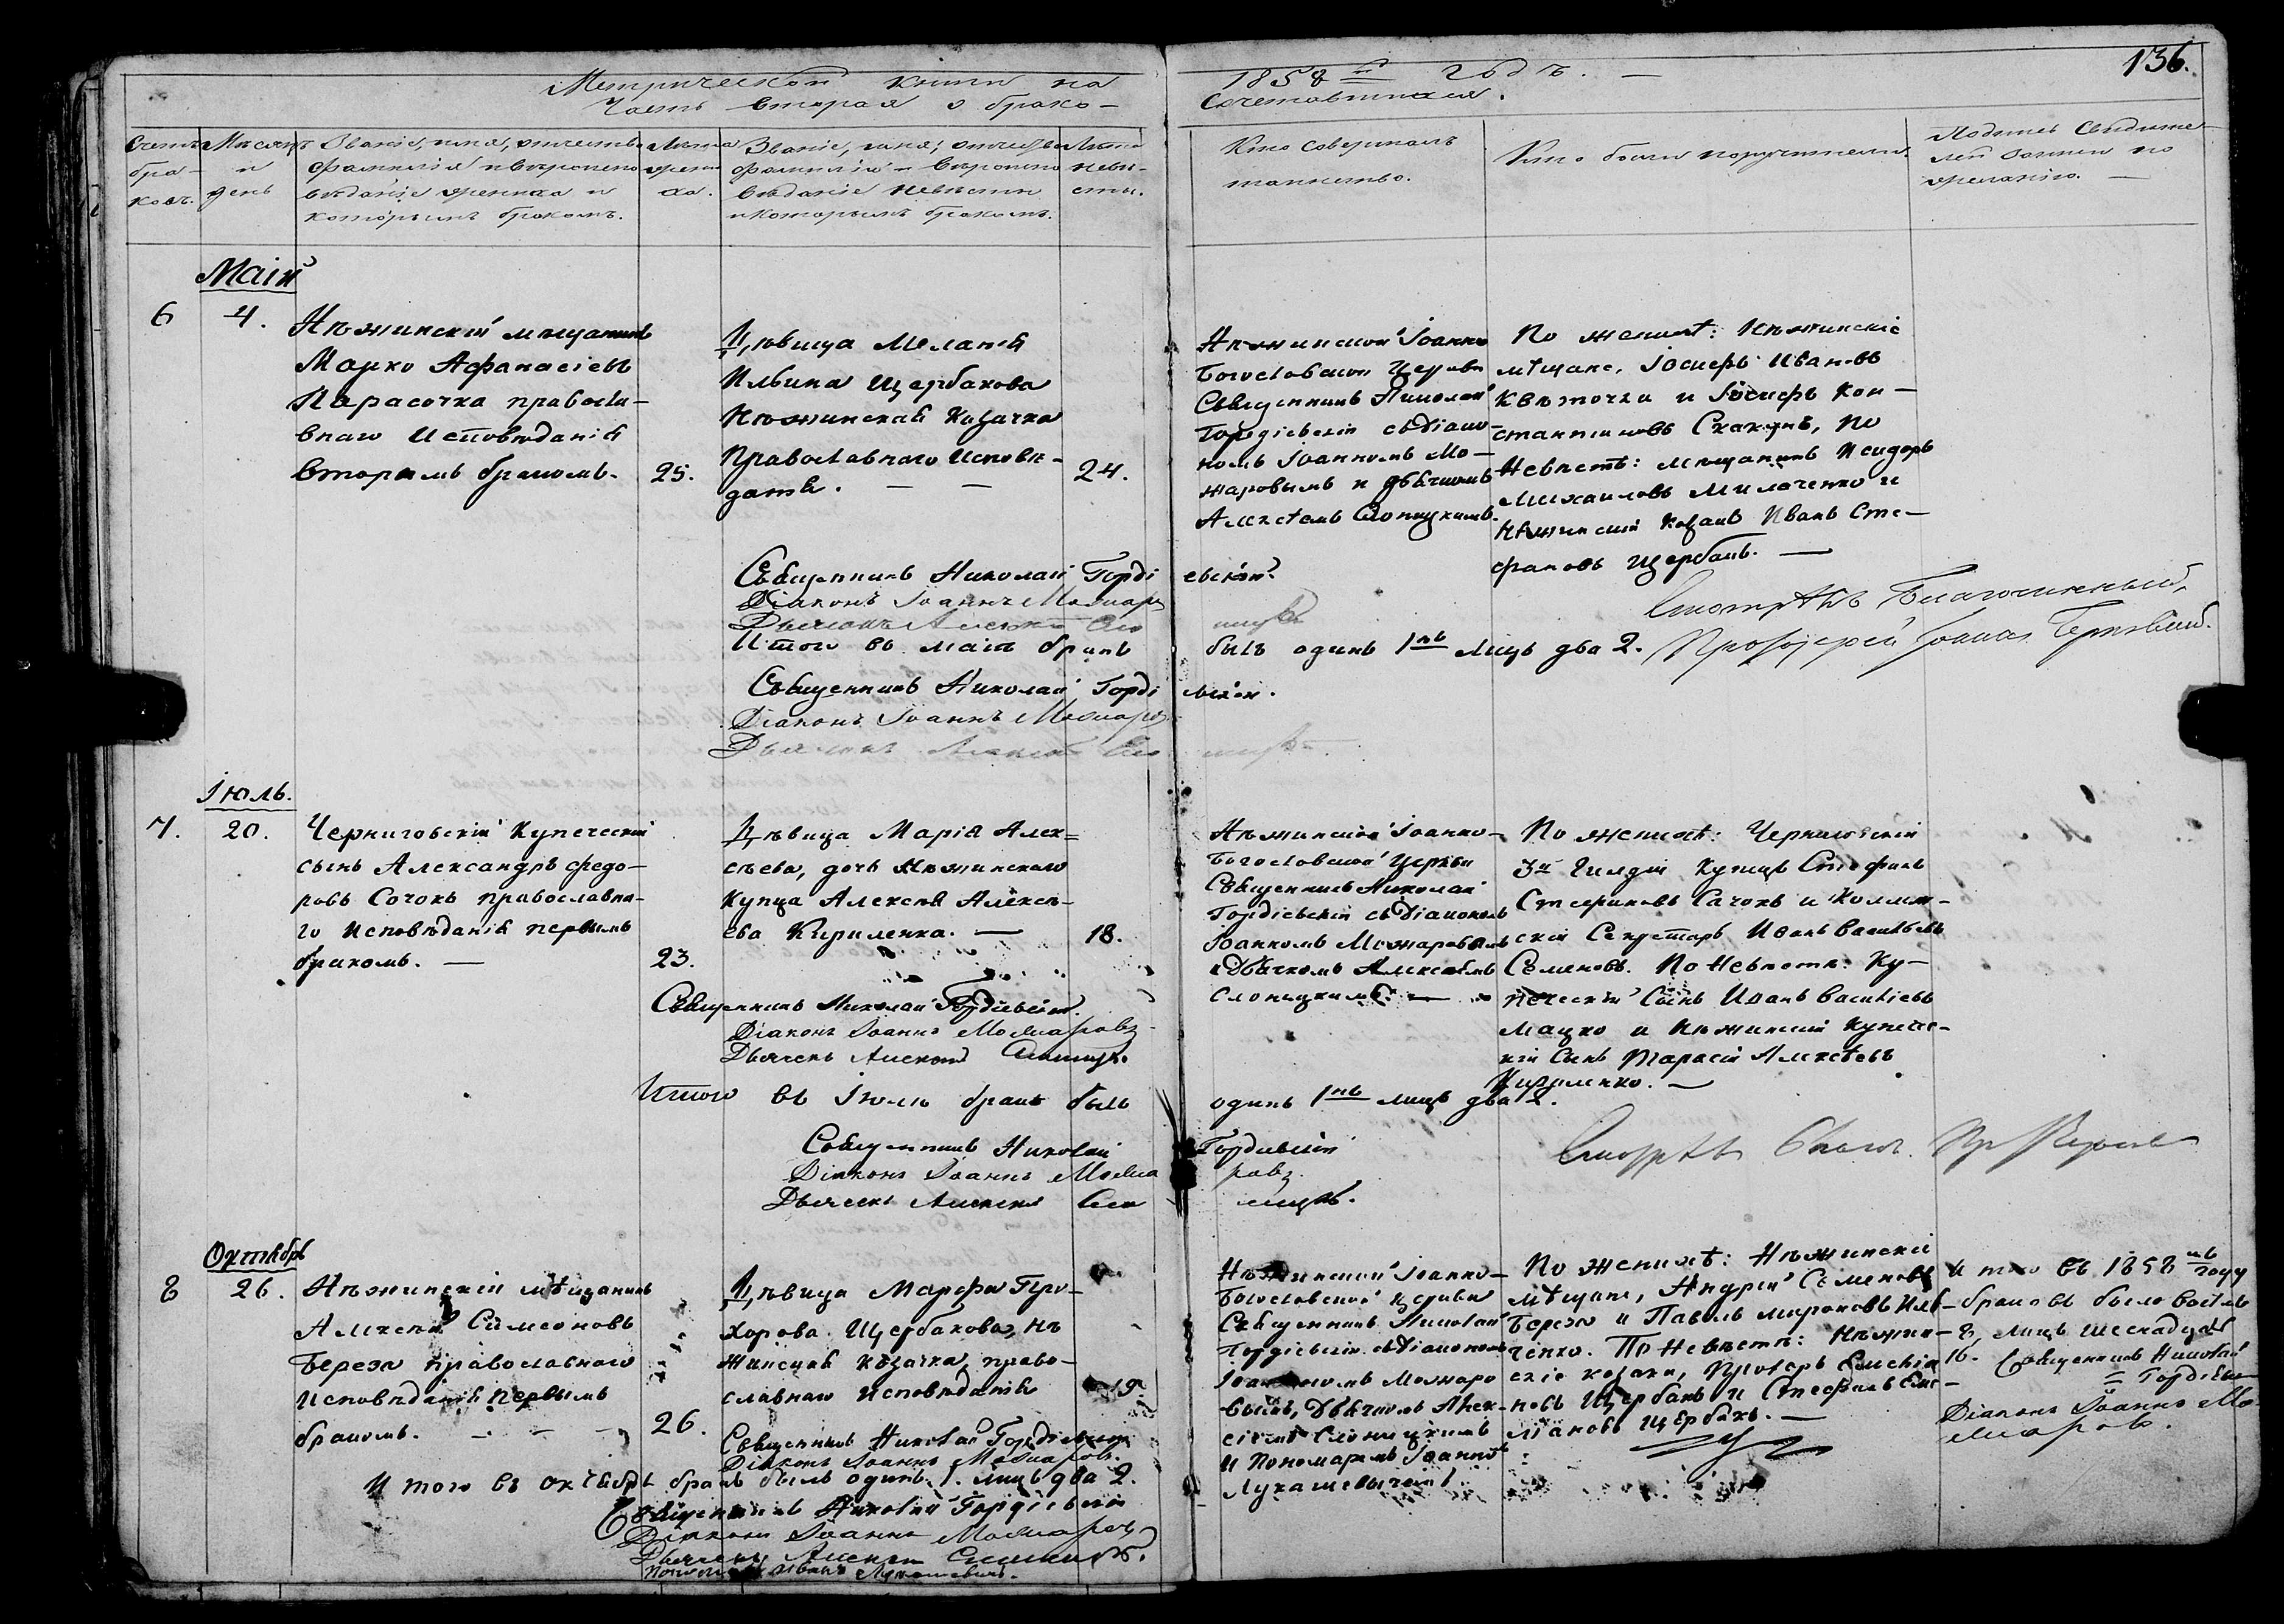 Метрической книги на 1858й годъ. —
136.
Часть вторая о брако-
сочетавшихся.
Счетъ браковъ.
Мѣсяцъ и день
Званіе, имя, отчество
фамилія и вѣроиспо
вѣданіе жениха и
которымъ бракомъ.
Лѣта
жени
ха.
Званіе, имя, отчество
фамилія и вѣроиспо
вѣданіе невѣсты
и которымъ бракомъ.
Лѣта
невѣ-
сты.
Кто совершалъ
таинство.
Кто были поручители.
Свидѣте-
лей записи по
желанію. —
Маій
6
4.
Нѣжинскій мѣщанинъ
Марко Афанасіевъ
Парасочка правосла-
внаго Исповѣданія
вторымъ бракомъ.
25.
Дѣвица Меланія
Ильина Щербакова
Нѣжинская Козачка
Православнаго Исповѣ-
данія. — —
24.
Нѣжинской Іоанно
Богословской Церкви
Священникъ Николай
Гордіевскій съ Діако-
номъ Іоанномъ Мо-
жаровымъ и Дьячкомъ
Алексѣемъ Слоницкимъ.
По женихѣ: Нѣжинскіе
мѣщане, Іосифъ Ивановъ
Квѣточка и Іосифъ Кон-
стантиновъ Скакунъ, по
Невѣстѣ: мѣщанинъ Исидоръ
Михаиловъ Милаченко и
Нѣжинскій Козакъ Иванъ Сте-
фановъ Щербакъ. —
Священникъ Николай Гордіевскій.
Діаконъ Іоаннъ Можаров
Дьячокъ Алексѣй Сло
Итого въ маіѣ бракъ былъ одинъ 1нъ лицъ два 2.
Смотрѣлъ Благочинный,
Протоіерей
Священникъ Николай Гордіевскій.
Діаконъ Іоаннъ Можаров
Дьячокъ Алексѣй Сло
Іюль.
7.
20.
Черниговскій Купеческій
сынъ Александръ Федо-
ровъ Сочокъ православна-
го Исповѣданія первымъ
бракомъ. —
23.
Дѣвица Марія Алек=
сѣева, дочь Нѣжинскаго
Купца Алексѣя Алексѣ-
ева Кириленка. —
18.
Нѣжинской Іоанно-
Богословской Церкви
Священникъ Николай
Гордіевскій съ Діакономъ
Іоанномъ Можаровымъ
и Дьячкомъ Алексѣемъ
Слоницкимъ. —
По женихѣ: Черниговскій
3й Гилдіи Купецъ Стефанъ
Стефановъ Сачокъ и Коллеж-
скій Секретарь Иванъ Васильевъ
Семеновъ. По Невѣстѣ: Ку-
печескій Сынъ Иванъ Василіевъ
Мацко и Нѣжинскій Купече-
скій Сынъ Тарасій Алексѣевъ
Кириленко. —
Священникъ Николай Гордіевскій.
Діаконъ Іоаннъ Можаровъ
Дьячекъ Алексѣй
Итого въ Іюлѣ бракъ былъ одинъ 1нъ лицъ два 2.
Священникъ Николай Гордіевскій
Діаконъ Іоаннъ Можаровъ
Дьячекъ Алексѣй Слоницкъ.
Смотрѣлъ
Октябрь
8
26.
Нѣжинскій мѣщанинъ
Алексѣй Симеоновъ
Береза православнаго
Исповѣданія первымъ
бракомъ. — — —
26.
Дѣвица Марфа Про-
хорова Щербакова, Нѣ
жинская козачка, право-
славнаго Исповѣданія
19.
Нѣжинской Іоанно-
Богословской церкви
Священникъ Николай
Гордіевскій съ Діакономъ
Іоанномъ Можаро
вымъ, Дьячкомъ Алек-
сіемъ Слоницкимъ
и Пономаремъ Іоанномъ
Лукашевичемъ
По Женихѣ: Нѣжинскіе
мѣщане, Андрій Семеновъ
Береза и Павелъ Мироновъ Иль-
ченко. По Невѣстѣ: Нѣжин-
скіе козаки, Прохоръ Емеліа
новъ Щербакъ и Стефанъ Еме-
ліановъ Щербакъ. —
Итого въ 1858мъ году
браковъ было восемь
8, лицъ шеснадцать
16. Священникъ Николай
Гордіевск
Діаконъ Іоаннъ Мо
жаровъ.
Священникъ Николай Гордіевскій
Діаконъ Іоаннъ Можаровъ.
Итого въ октябрѣ бракъ былъ одинъ 1. лицъ два 2.
Священникъ Николай Гордіевскій
Діаконъ Іоаннъ Можаровъ
Дьячекъ Алексѣй
Пономарь Иванъ Лукашевичъ.